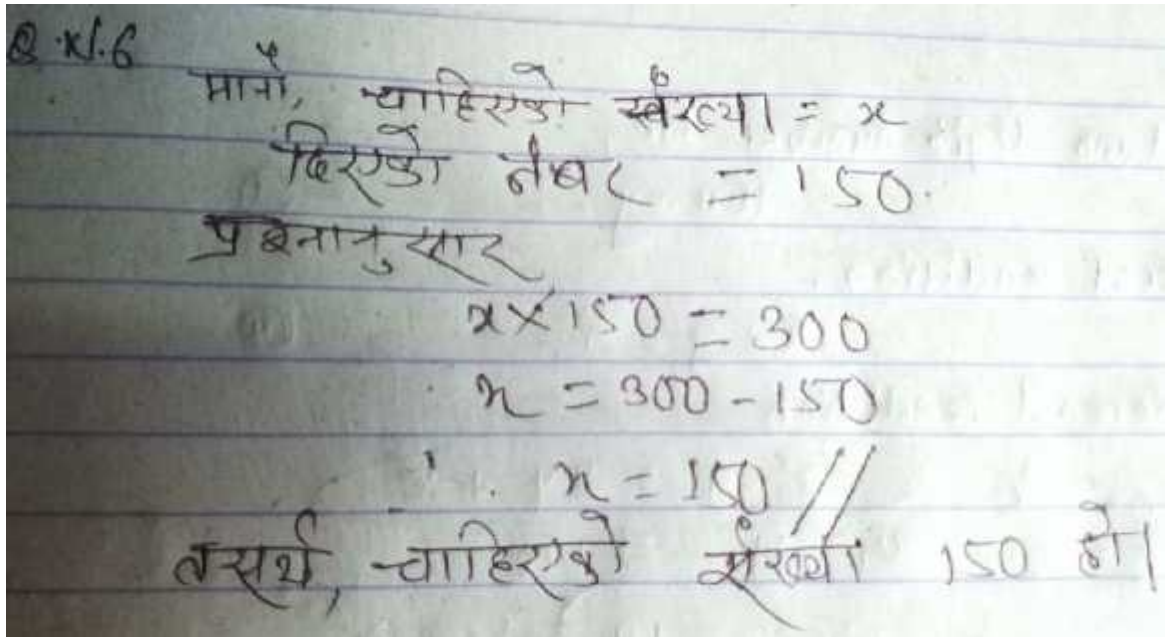 Q.N.6
मानौं, चाहिएको संख्या = x
दिएको नंबर = 150.
प्रश्नानुसार
x × 150 = 300
x = 300 - 150
∴ x = 150 //
तसर्थ, चाहिएको संख्या 150 हो।